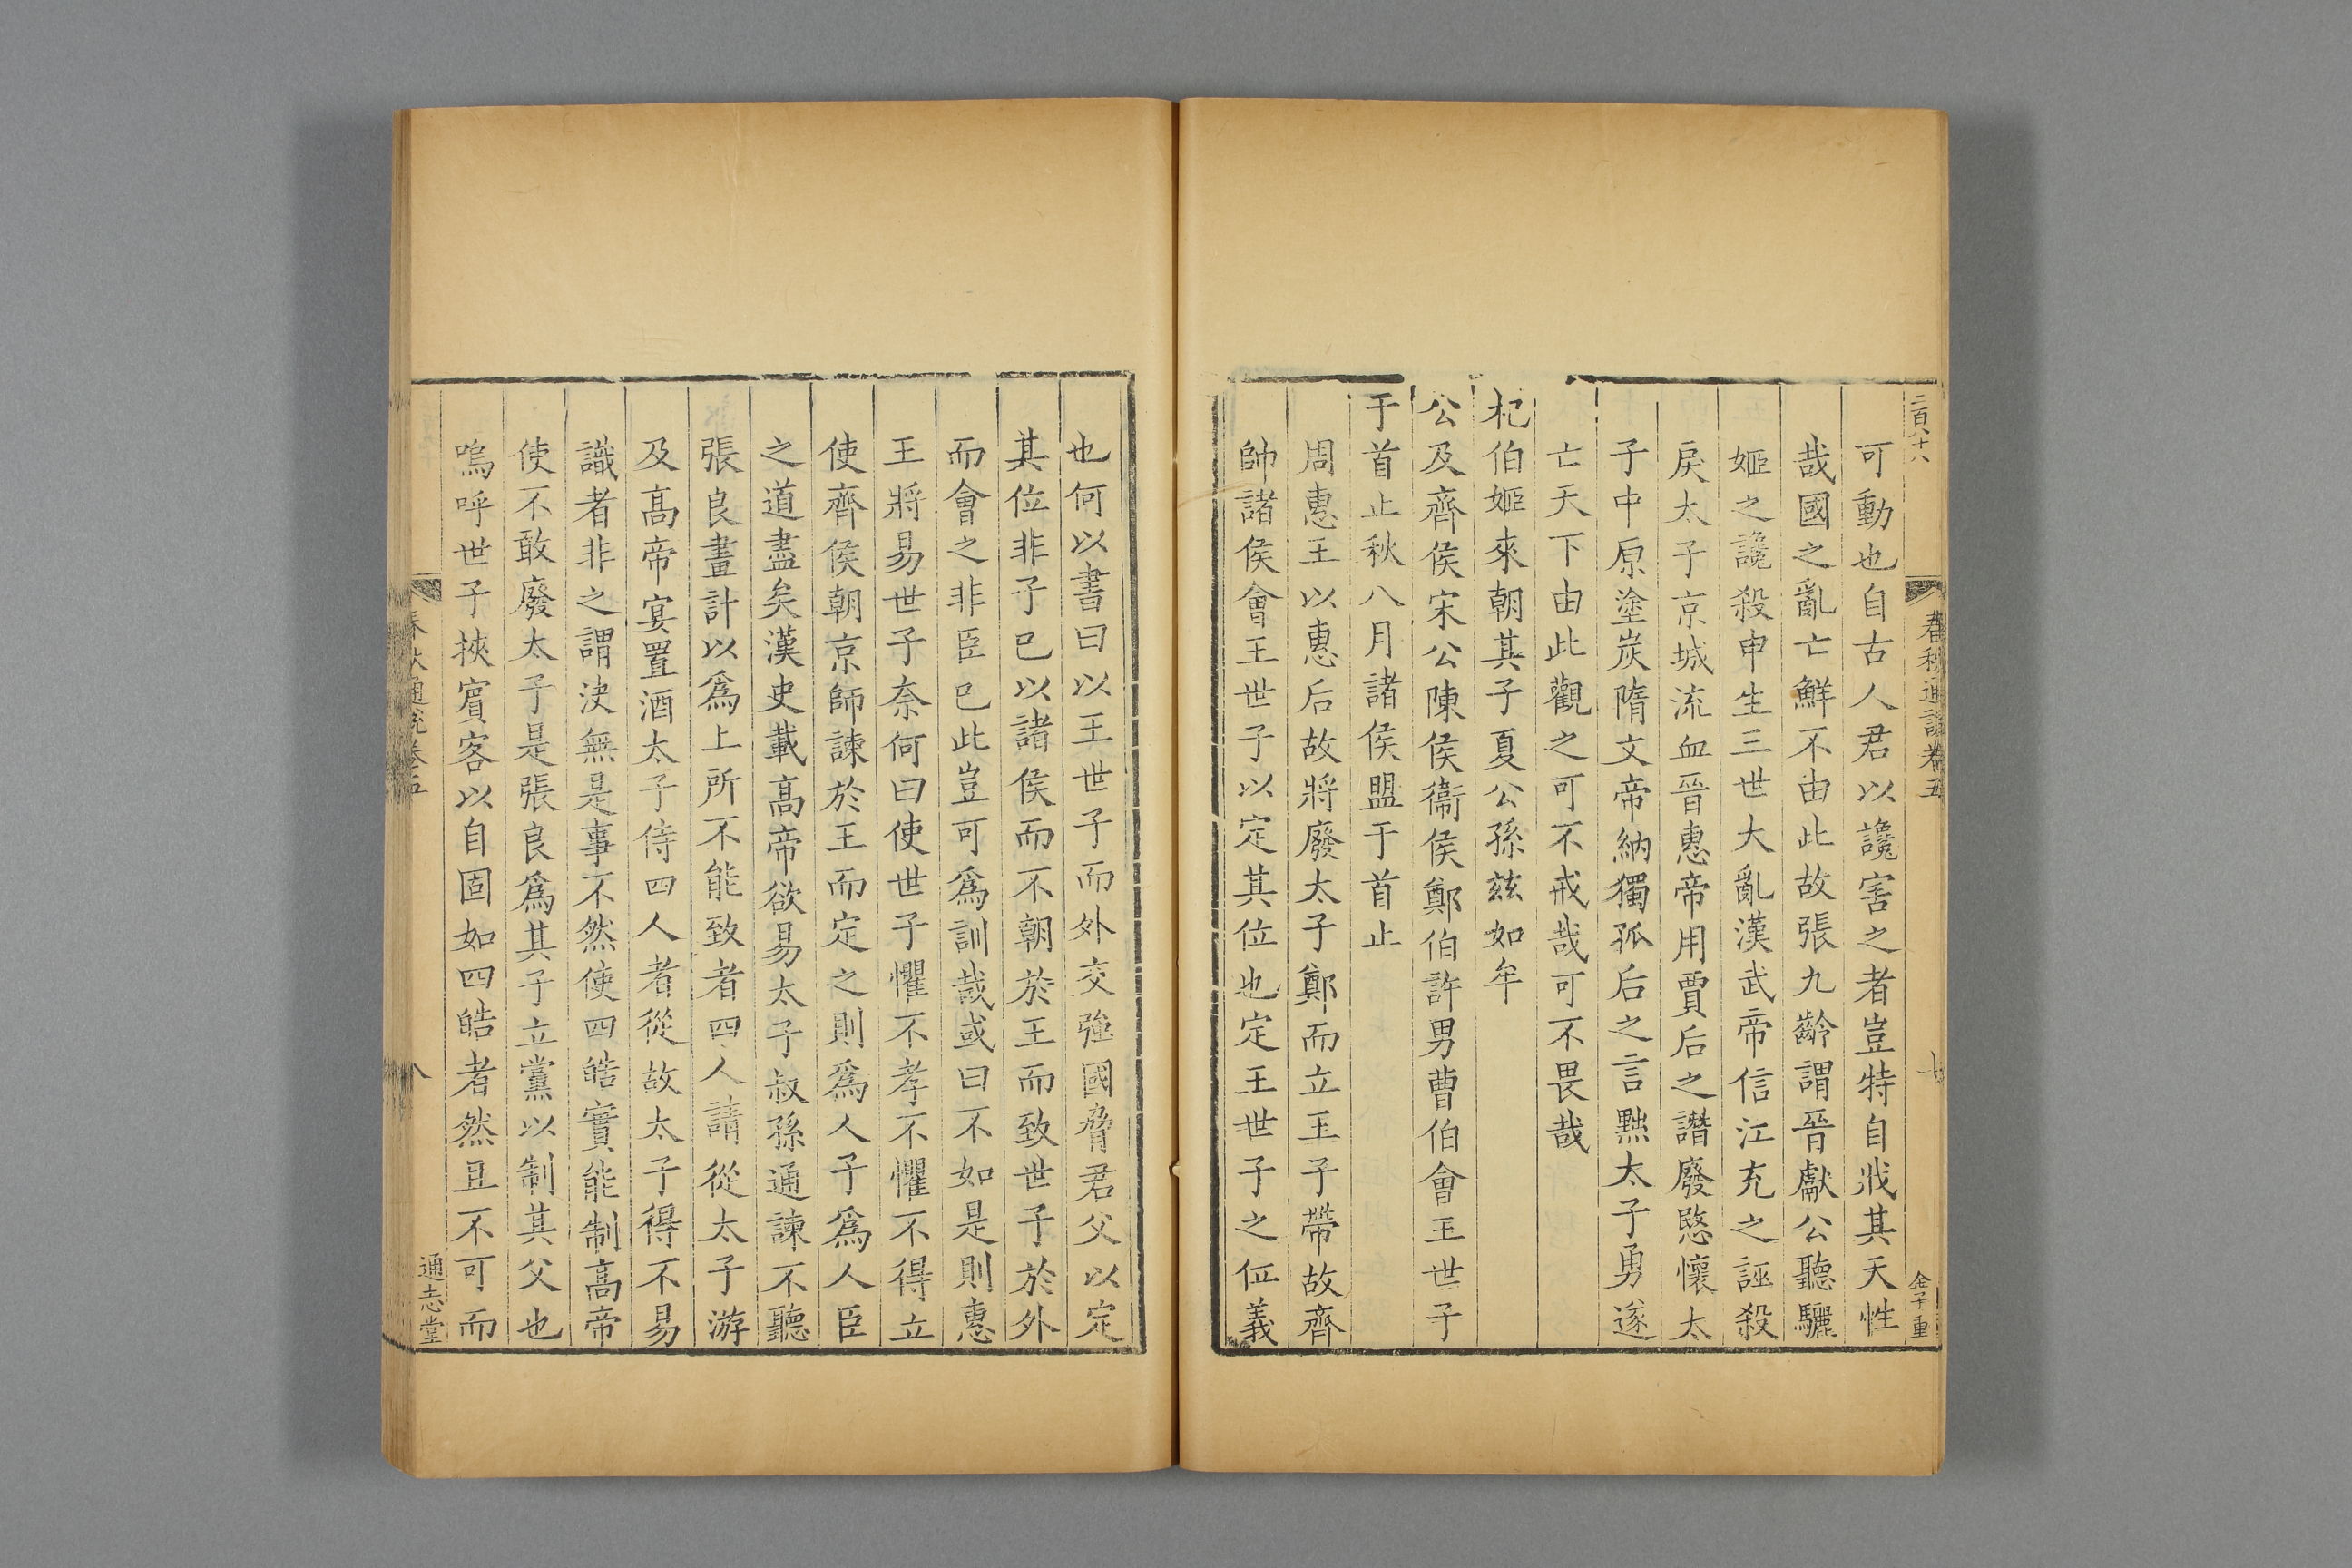 二百八十八
春秋通說卷五
金子重
可動也自古人君以讒害之者豈特自戕其天性
哉國之亂亡鮮不由此故張九齡謂晉獻公聽驪
姬之讒殺申生三世大亂漢武帝信江充之誣殺
戾太子京城流血晉惠帝用賈后之譖廢愍懷太
子中原塗炭隋文帝納獨孤后之言黜太子勇遂
亡天下由此觀之可不戒哉可不畏哉
杞伯姬來朝其子夏公孫茲如牟
公及齊侯宋公陳侯衞侯鄭伯許男曹伯會王世子
于首止秋八月諸侯盟于首止
周惠王以惠后故將廢太子鄭而立王子帶故齊
帥諸侯會王世子以定其位也定王世子之位義
也何以書曰以王世子而外交強國脅君父以定
其位非子已以諸侯而不朝於王而致世子於外
而會之非臣已此豈可爲訓哉或曰不如是則惠
王將易世子奈何曰使世子懼不孝不懼不得立
使齊侯朝京師諫於王而定之則爲人子爲人臣
之道盡矣漢史載高帝欲易太子叔孫通諫不聽
張良畫計以爲上所不能致者四人請從太子游
及高帝宴置酒太子侍四人者從故太子得不易
識者非之謂決無是事不然使四皓實能制高帝
使不敢廢太子是張良爲其子立黨以制其父也
嗚呼世子挾賓客以自固如四皓者然且不可而
春秋通說卷五
八
通志堂